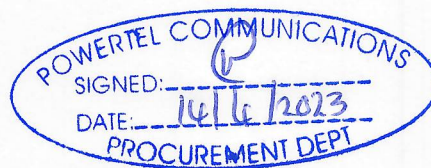 POWERTEL COMMUNICATIONS
SIGNED:
DATE: 14/4/2023
PROCUREMENT DEPT